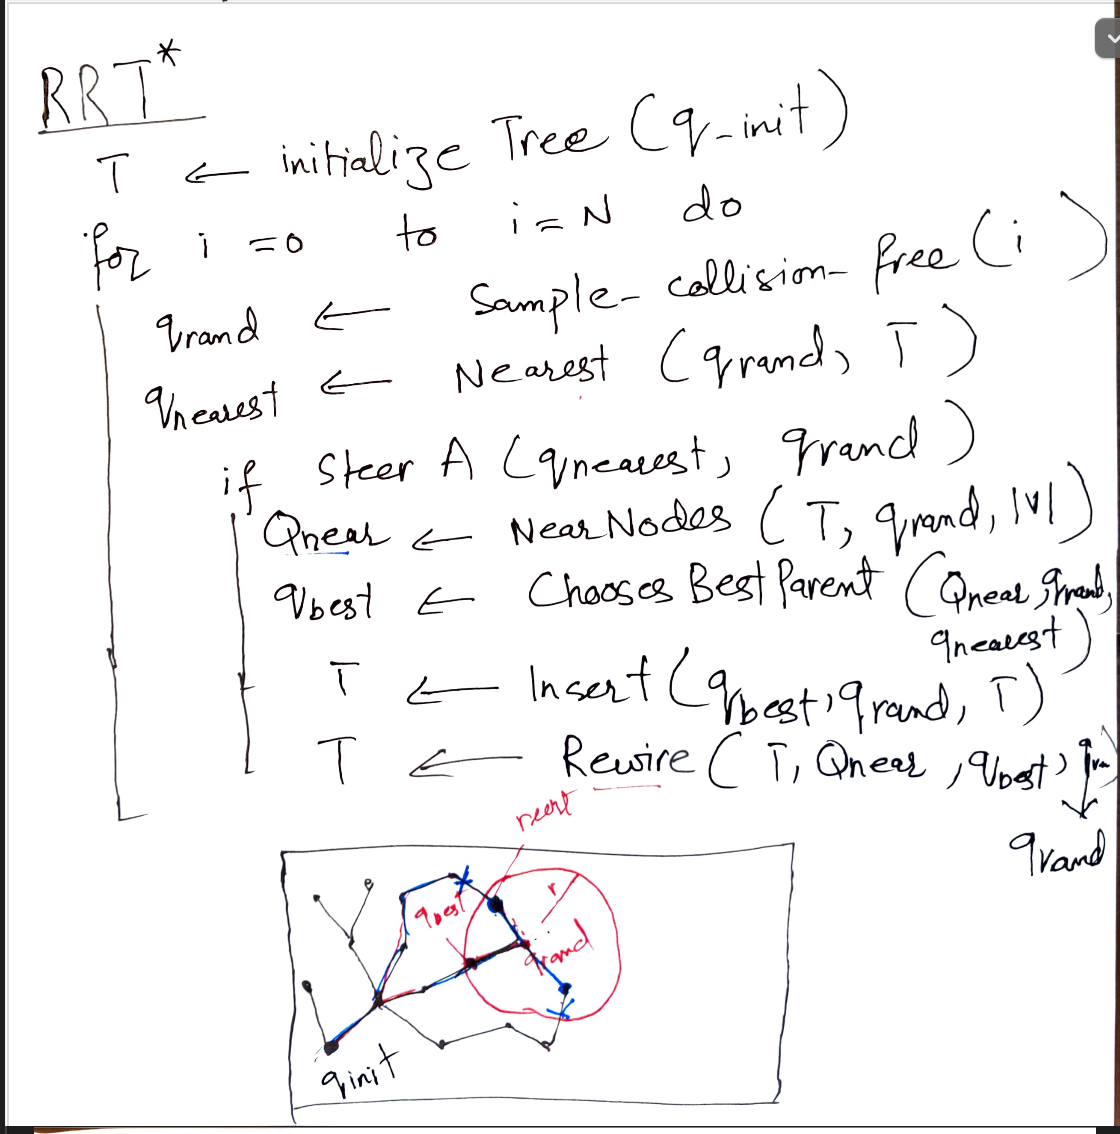 RRT*
T ← initialize Tree (q-init)
for i = 0 to i = N do
qrand ← Sample-collision-free (i)
qnearest ← Nearest (qrand, T)
if Steer A (qnearest, qrand)
Qnear ← Near Nodes (T, qrand, |V|)
qbest ← Chooses Best Parent (Qnear, qrand,
qnearest)
T ← Insert (qbest, qrand, T)
T ← Rewire (T, Qnear, qbest,
qrand
r
qbest
qrand
qinit